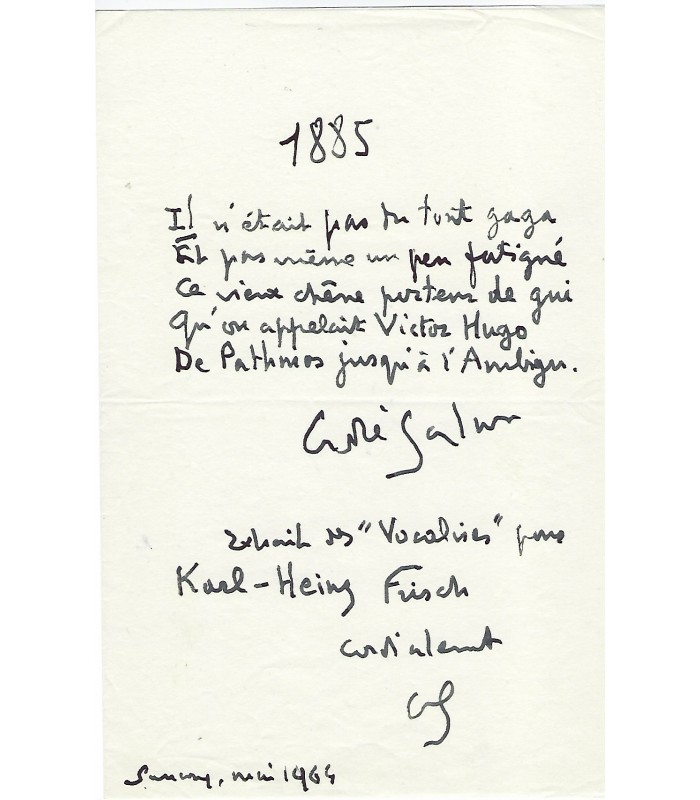 1885
Il n'était pas du tout gaga
Et pas même un peu fatigué
Ce vieux chêne porteur de gui
Qu'on appelait Victor Hugo
De Pathmos jusqu'à l'Ambigu.
André Salmon
extrait des "Vocalises" pour
Karl-Heinz Frisch
cordialement
AS
Sanary, mai 1964